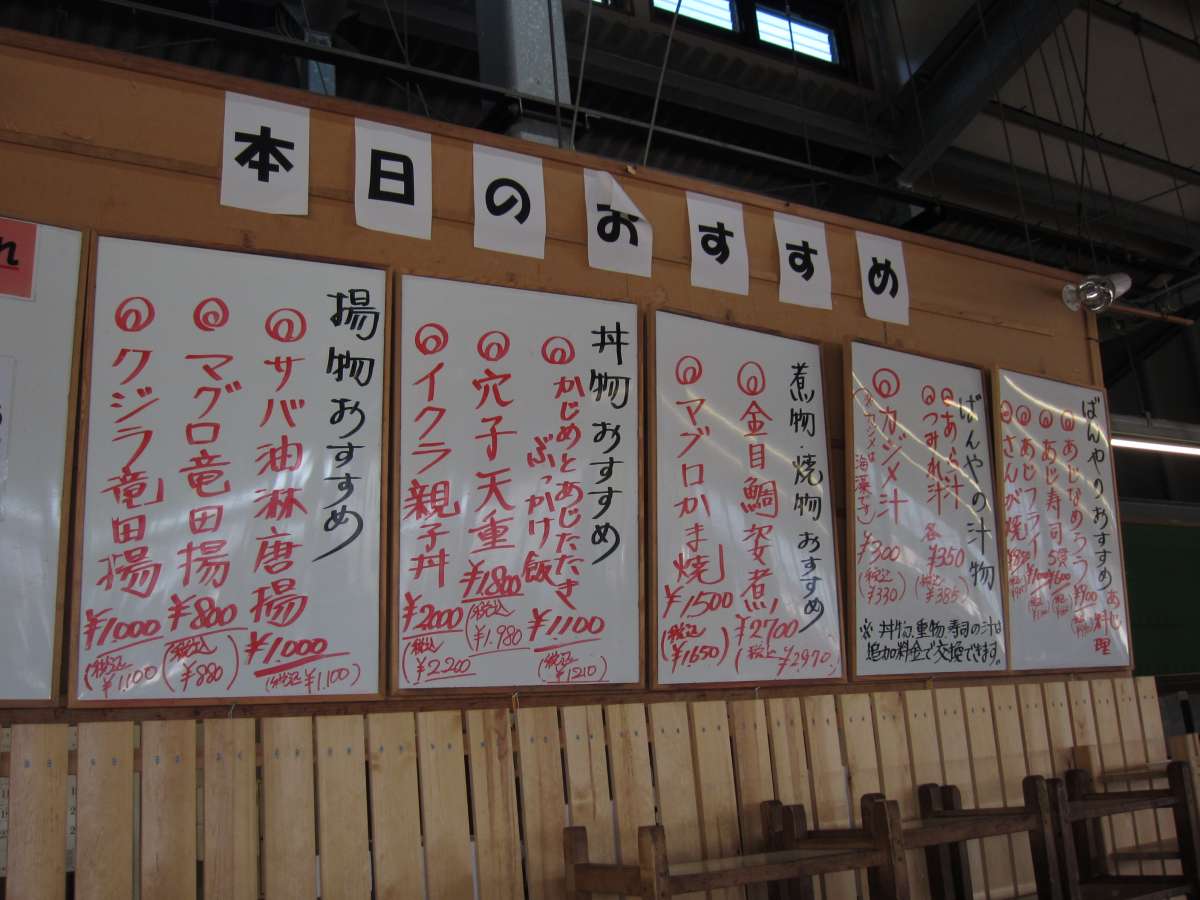 本日のおすすめ
れ
揚物おすすめ
サバ油淋唐揚
¥1.000
(税込¥1.100)
マグロ竜田揚
¥800
(税込¥880)
クジラ竜田揚
¥1000
(税込¥1.100)
丼物おすすめ
かじめとあじたたき
ぶっかけ飯
¥1,100
(税込¥1210)
穴子天重
¥1.800
(税込¥1.980)
イクラ親子丼
¥2000
(税込¥2.200)
煮物・焼物おすすめ
金目鯛姿煮
¥2,700
(税込¥2970)
マグロかま焼
¥1500
(税込¥1650)
ばんやの汁物
あら汁
つみれ汁
各¥350
(税込¥385)
カジメ汁
(カジメは海藻です)
¥300
(税込¥330)
※丼物、重物、寿司の汁は
追加料金で交換できます。
ばんやのおすすめあじ料理
あじなめろう
¥900
あじ寿司5貫
¥1600
あじフライ
さんが焼